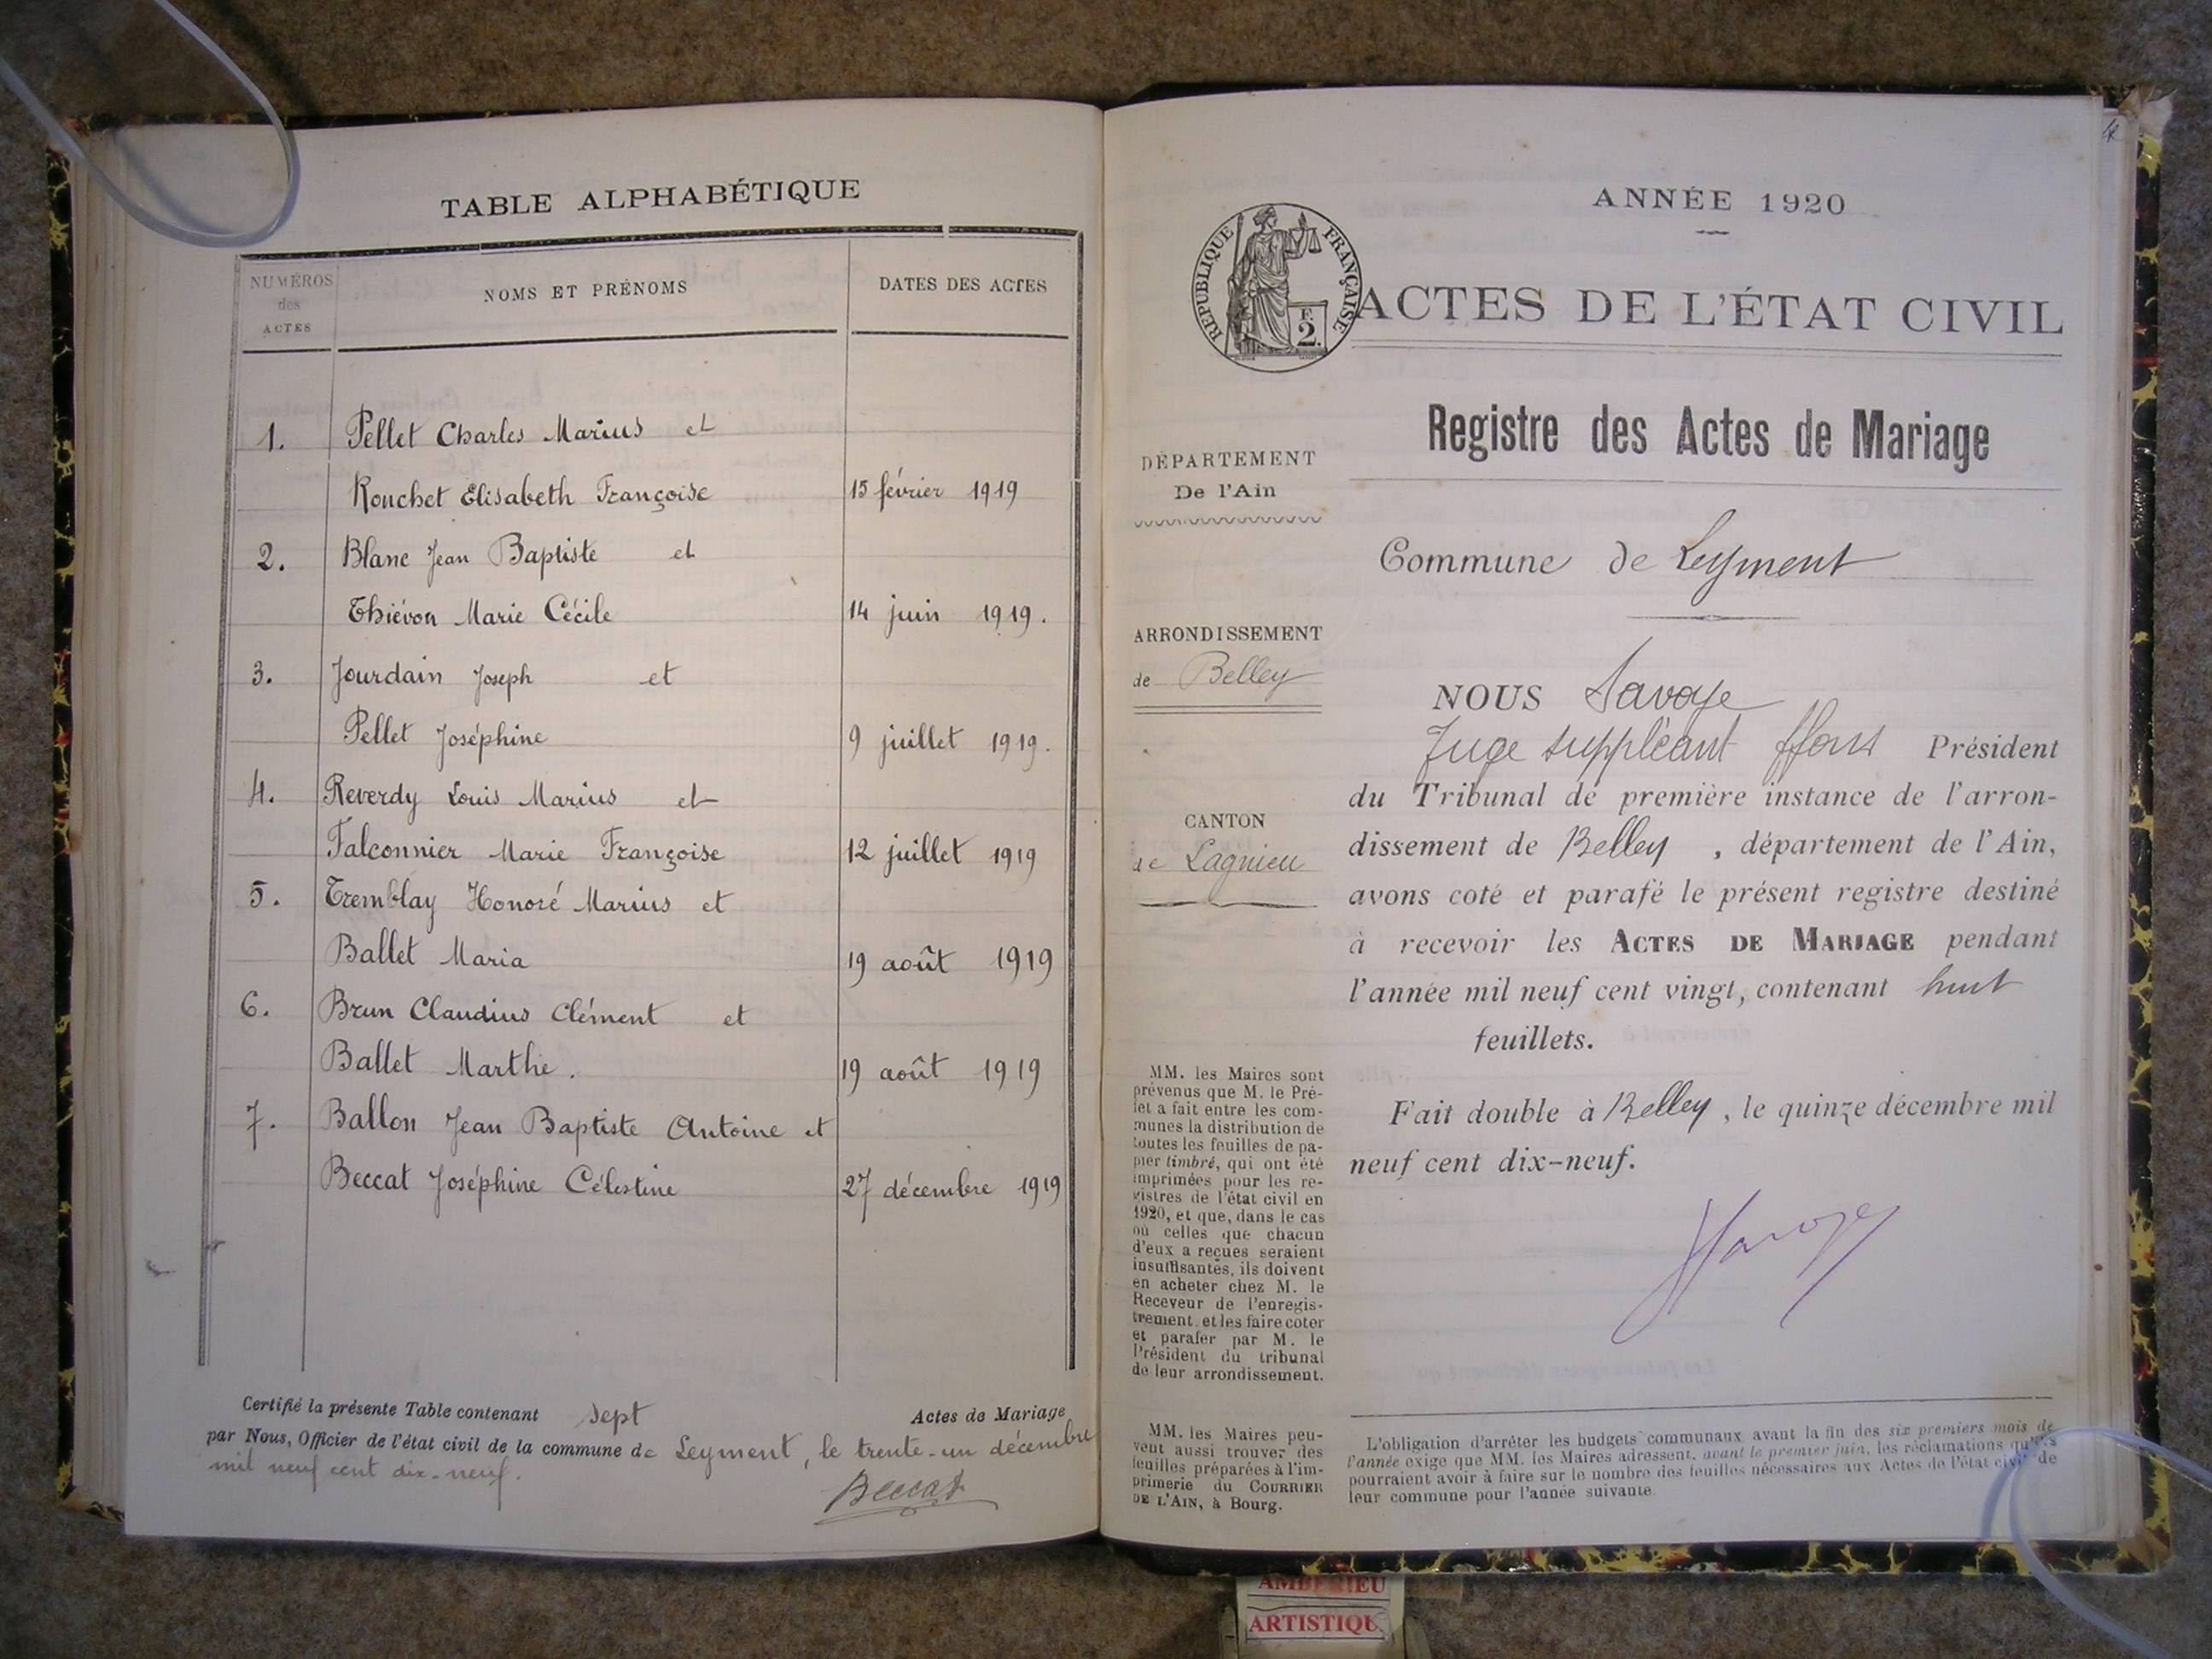 TABLE ALPHABÉTIQUE
NUMÉROS
des
ACTES
NOMS ET PRÉNOMS
DATES DES ACTES
1. Pellet Charles Marius et
Rouchet Elisabeth Françoise 15 février 1919
2. Blanc Jean Baptiste et
Thiévon Marie Cécile 14 juin 1919.
3. Jourdain Joseph et
Pellet Joséphine 9 juillet 1919.
4. Reverdy Louis Marius et
Falconnier Marie Françoise 12 juillet 1919
5. Tremblay Honoré Marius et
Ballet Maria 19 août 1919
6. Brun Claudius Clément et
Ballet Marthe. 19 août 1919
7. Ballon Jean Baptiste Antoine et
Beccat Joséphine Célestine 27 décembre 1919
Certifié la présente Table contenant sept Actes de Mariage
par Nous, Officier de l'état civil de la commune de Leyment, le trente-un décembre
mil neuf cent dix-neuf.
Beccat
ANNÉE 1920
RÉPUBLIQUE FRANÇAISE
F.
2.
ACTES DE L'ÉTAT CIVIL
Registre des Actes de Mariage
DÉPARTEMENT
De l'Ain
Commune de Leyment
ARRONDISSEMENT
de Belley
CANTON
de Lagnieu
NOUS Savoye
Juge suppléant ffons Président
du Tribunal de première instance de l'arron-
dissement de Belley , département de l'Ain,
avons coté et parafé le présent registre destiné
à recevoir les ACTES DE MARIAGE pendant
l'année mil neuf cent vingt, contenant huit
feuillets.
Fait double à Belley, le quinze décembre mil
neuf cent dix-neuf.
Savoye
MM. les Maires sont
prévenus que M. le Pré-
fet a fait entre les com-
munes la distribution de
toutes les feuilles de pa-
pier timbré, qui ont été
imprimées pour les re-
gistres de l'état civil en
1920, et que, dans le cas
où celles que chacun
d'eux a reçues seraient
insuffisantes, ils doivent
en acheter chez M. le
Receveur de l'enregis-
trement, et les faire coter
et parafer par M. le
Président du tribunal
de leur arrondissement.
MM. les Maires peu-
vent aussi trouver des
feuilles préparées à l'im-
primerie du COURRIER
DE L'AIN, à Bourg.
L'obligation d'arrêter les budgets communaux avant la fin des six premiers mois de
l'année exige que MM. les Maires adressent, avant le premier juin, les réclamations qu'ils
pourraient avoir à faire sur le nombre des feuilles nécessaires aux Actes de l'état civil de
leur commune pour l'année suivante.
AMBERIEU
ARTISTIQU